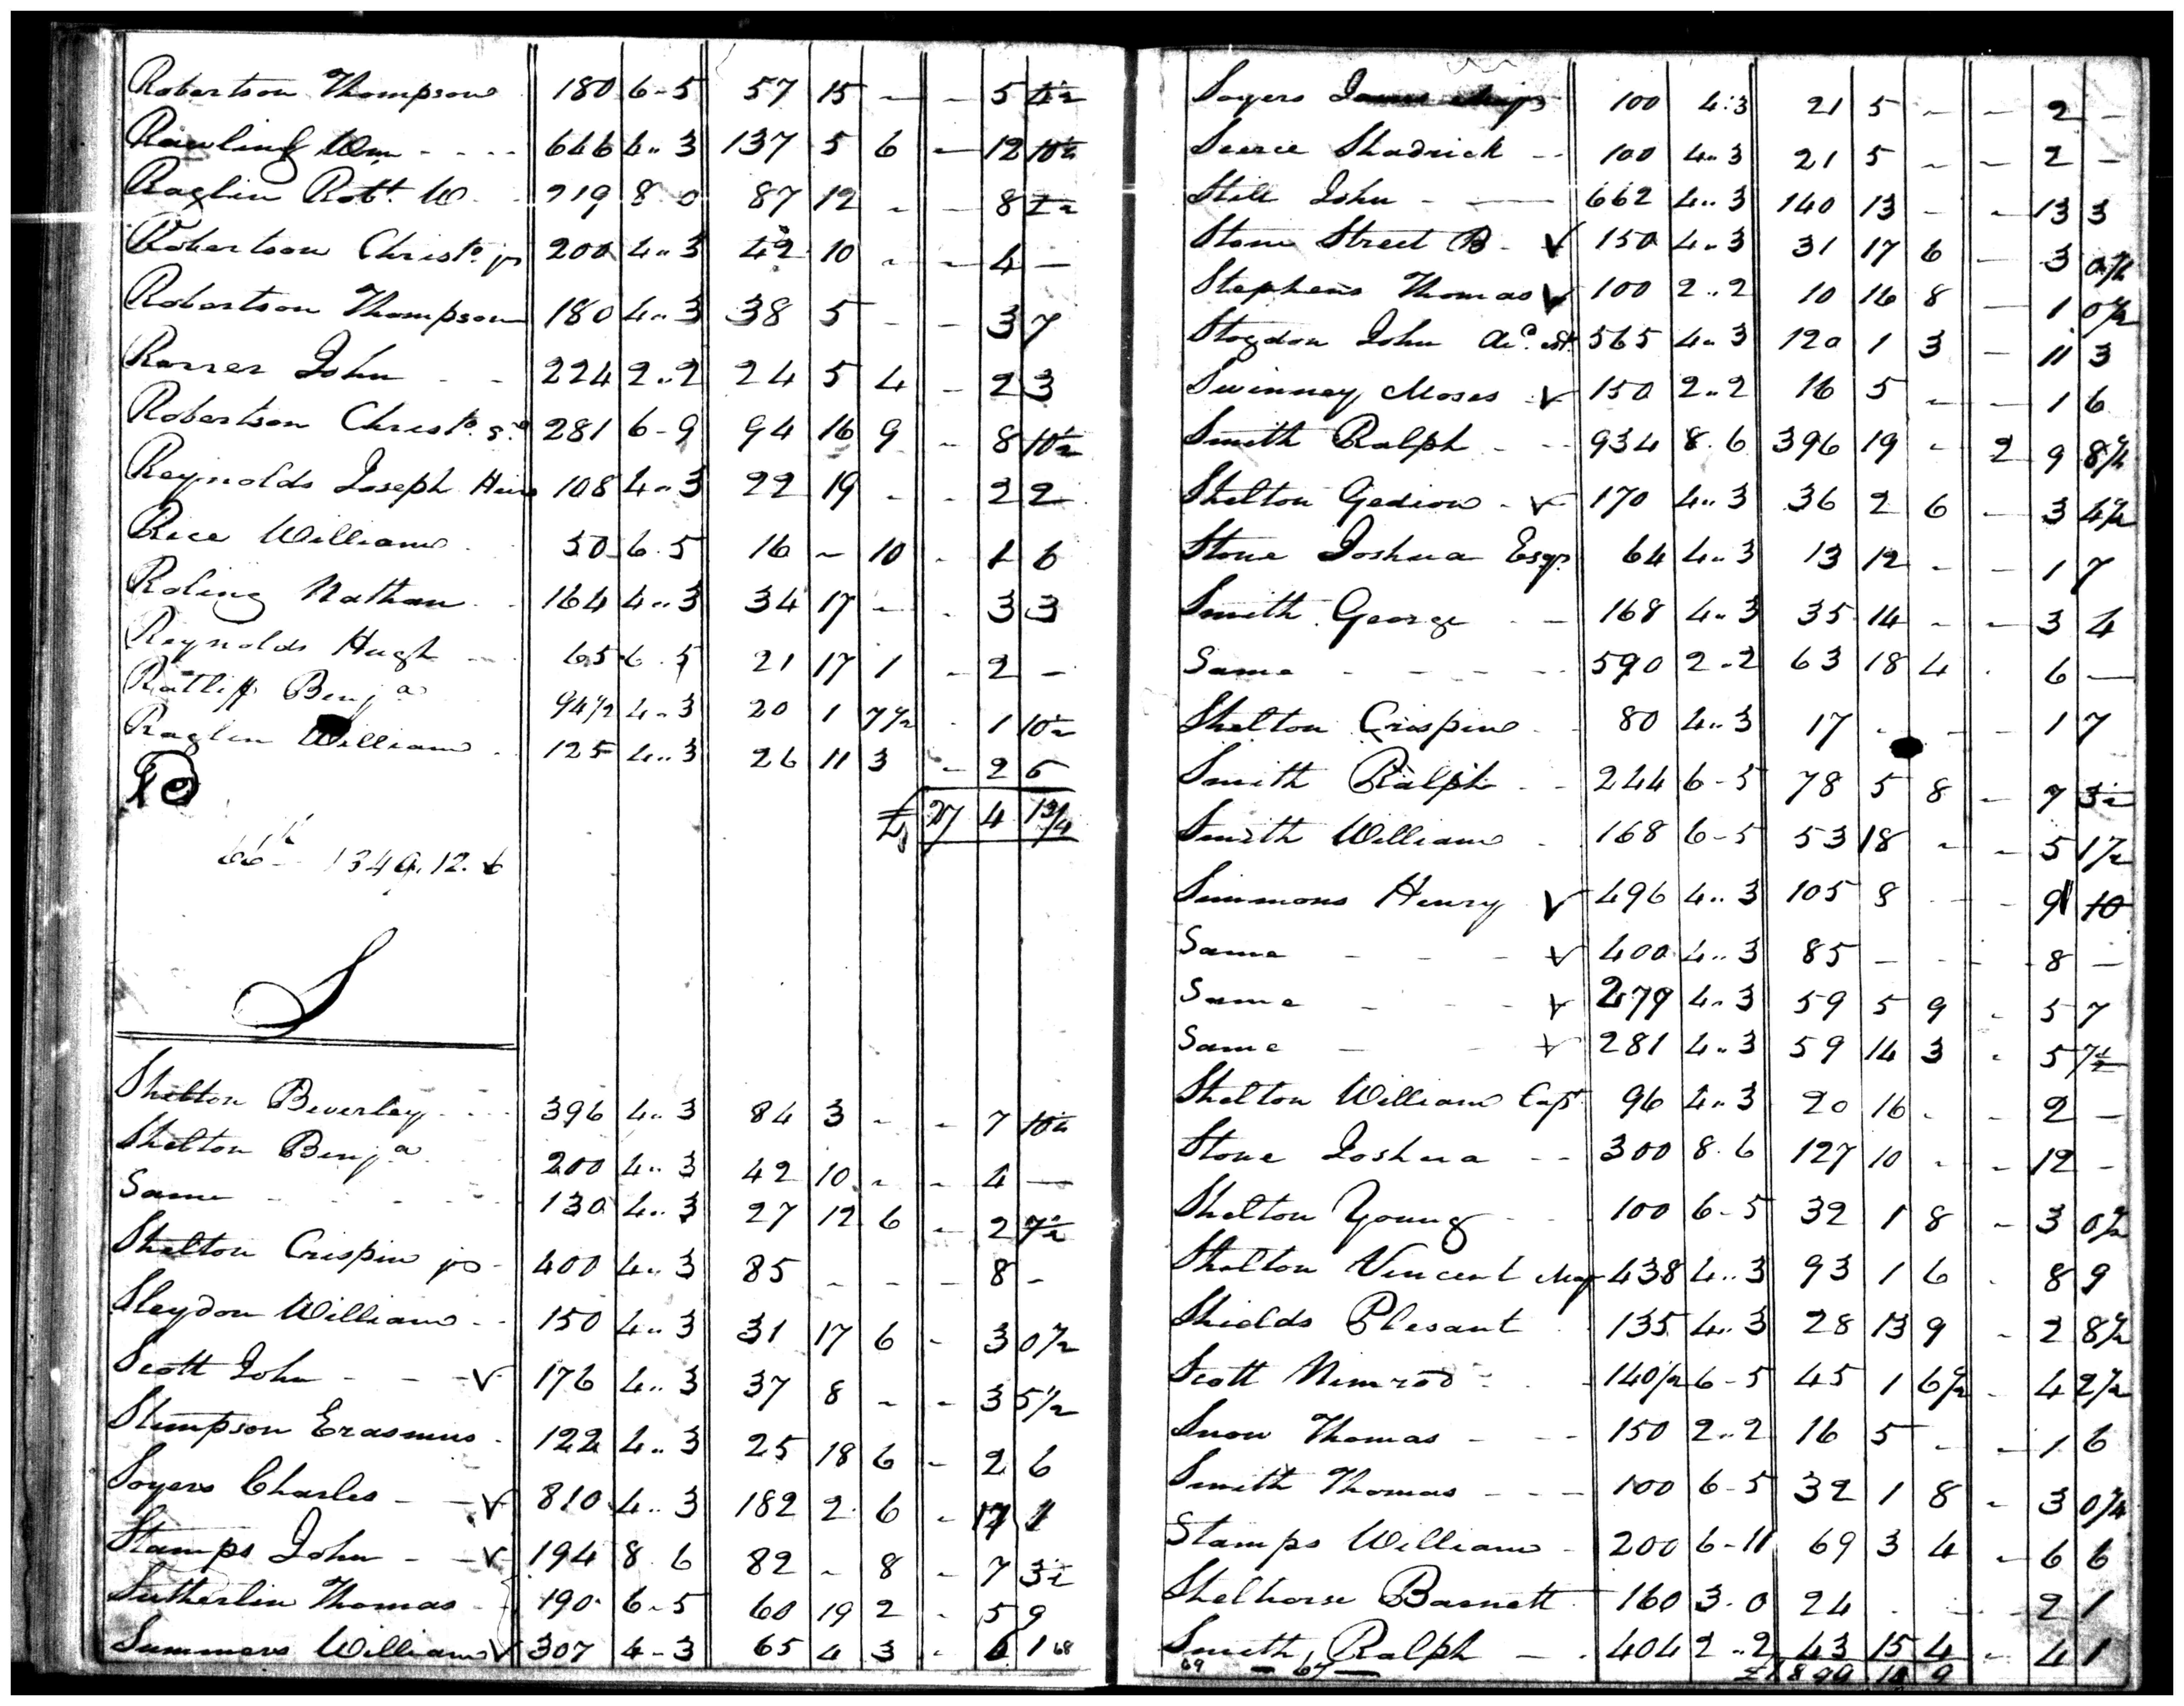 Robertson Thompson 180 6-5 57 15 - - 5 4½
Rawling Wm - - - 646 4..3 137 5 6 - 12 10½
Raglin Robt. W - 219 8 0 87 12 - - 8 2½
Robertson Christo. jr 200 4..3 42 10 - - 4 -
Robertson Thompson 180 4..3 38 5 - - 3 7
Rorrer John - - 224 2..2 24 5 4 - 2 3
Robertson Christo. sr 281 6-9 94 16 9 - 8 10½
Reynolds Joseph Heirs 108 4..3 22 19 - - 2 2
Rice William 50 6.5 16 - 10 - 1 6
Roling Nathan 164 4..3 34 17 - - 3 3
Reynolds Hugh - 65 6.5 21 17 1 - 2 -
Ratliff Benja 94½ 4..3 20 1 7½ - 1 10½
Raglin William - 125 4..3 26 11 3 - 2 6
£ 27 4 1¾
1349.12.6
S
Shelton Beverley - - - 396 4..3 84 3 - - 7 10½
Shelton Benja 200 4..3 42 10 - - 4 -
Same - - - - 130 4..3 27 12 6 - 2 7½
Shelton Crispin jr - 400 4..3 85 - - - 8 -
Slaydon William - - 150 4..3 31 17 6 - 3 0½
Scott John - - - v 176 4..3 37 8 - - 3 5½
Stimpson Erasmus - 122 4..3 25 18 6 - 2 6
Soyers Charles - - v 810 4..3 182 2 6 - 17 1
Stamps John - - v 194 8.6 82 - 8 - 7 3½
Sutherlin Thomas - 190 6-5 60 19 2 - 5 9
Summers William v 307 4-3 65 4 3 - 6 1
68
Soyers James 100 4.3 21 5 - - 2 -
Scerce Shadrick - - 100 4..3 21 5 - - 2 -
Still John - - 662 4..3 140 13 - - 13 3
Stone Street B - v 150 4..3 31 17 6 - 3 0½
Stephens Thomas v 100 2..2 10 16 8 - 1 0½
Stogdon John 565 4..3 120 1 3 - 11 3
Swinney Moses - v 150 2..2 16 5 - - 1 6
Smith Ralph - - 934 8.6 396 19 - 2 9 8½
Shelton Gedion - v 170 4..3 36 2 6 - 3 4½
Stone Joshua Esqr. 64 4..3 13 12 - - 1 7
Smith George - - 168 4..3 35 14 - - 3 4
Same - - - - 590 2..2 63 18 4 . 6 -
Shelton Crispin - 80 4..3 17 - - - 1 7
Smith Ralph - - 244 6-5 78 5 8 - 7 3½
Smith William - 168 6-5 53 18 - - 5 1½
Simmons Henry v 496 4..3 105 8 - - 9 10
Same - - - v 400 4..3 85 - - - 8 -
Same - - - v 279 4..3 59 5 9 - 5 7
Same - - v 281 4..3 59 14 3 - 5 7½
Shelton William Capt 96 4..3 20 16 - - 2 -
Stone Joshua - - 300 8.6 127 10 - - 12 -
Shelton Young - - 100 6-5 32 1 8 - 3 0½
Shelton Vincent Maj 438 4..3 93 1 6 - 8 9
Shields Plesant - 135 4..3 28 13 9 - 2 8½
Scott Nimrod - - 140½ 6-5 45 1 6½ - 4 2½
Snow Thomas - - - 150 2..2 16 5 - - 1 6
Smith Thomas - - - 100 6-5 32 1 8 - 3 0½
Stamps William - 200 6-11 69 3 4 - 6 6
Shelhorse Barnett - 160 3.0 24 - - - 2 1
Smith Ralph - . 404 2..2 43 15 4 - 4 1
69